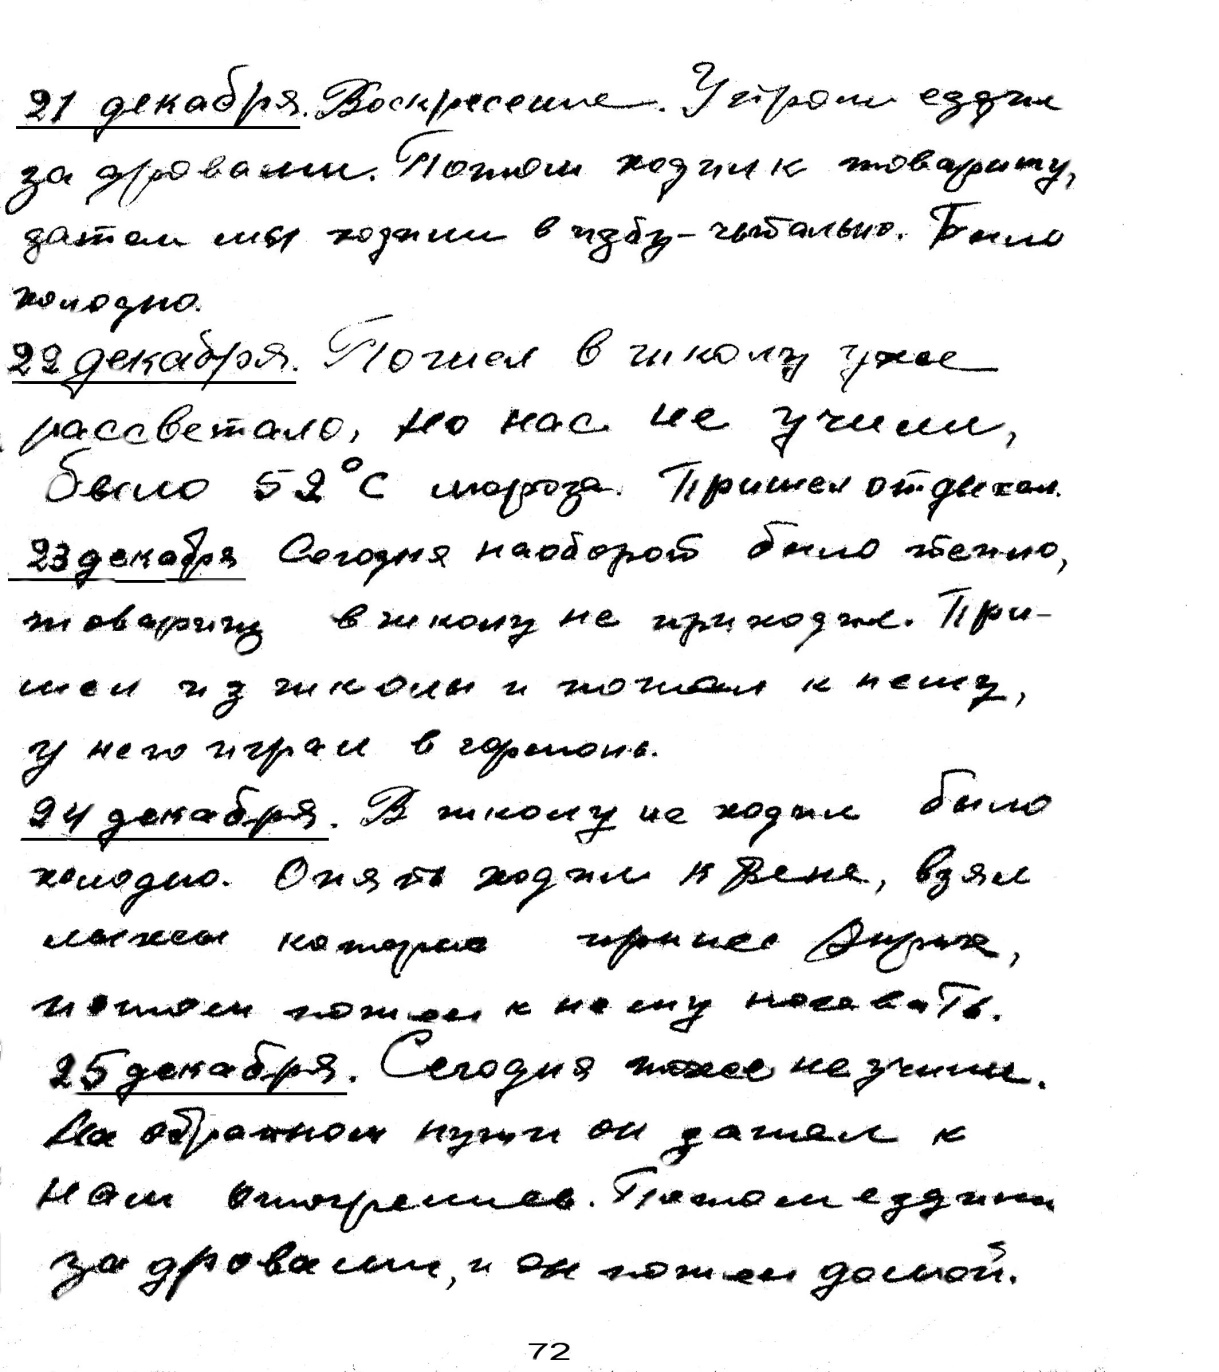 21 декабря. Воскресение. Утром ездил
за дровами. Потом ходил к товарищу,
затем мы ходили в избу-читальню. Было
холодно.
22 декабря. Пошел в школу уже
рассветало, но нас не учили,
было 52°С мороза. Пришел отдыхал.
23 декабря Сегодня наоборот было тепло,
товарищ в школу не приходил. При-
шел из школы и пошел к нему,
у него играл в гармонь.
24 декабря. В школу не ходил было
холодно. Опять ходил к Вене, взял
лыжи которые принес
потом пошел к нему ночевать.
25 декабря. Сегодня тоже не учили.
На обратном пути он зашел к
нам отогрелись. Потом ездили
за дровами, и он пошел домой.
72